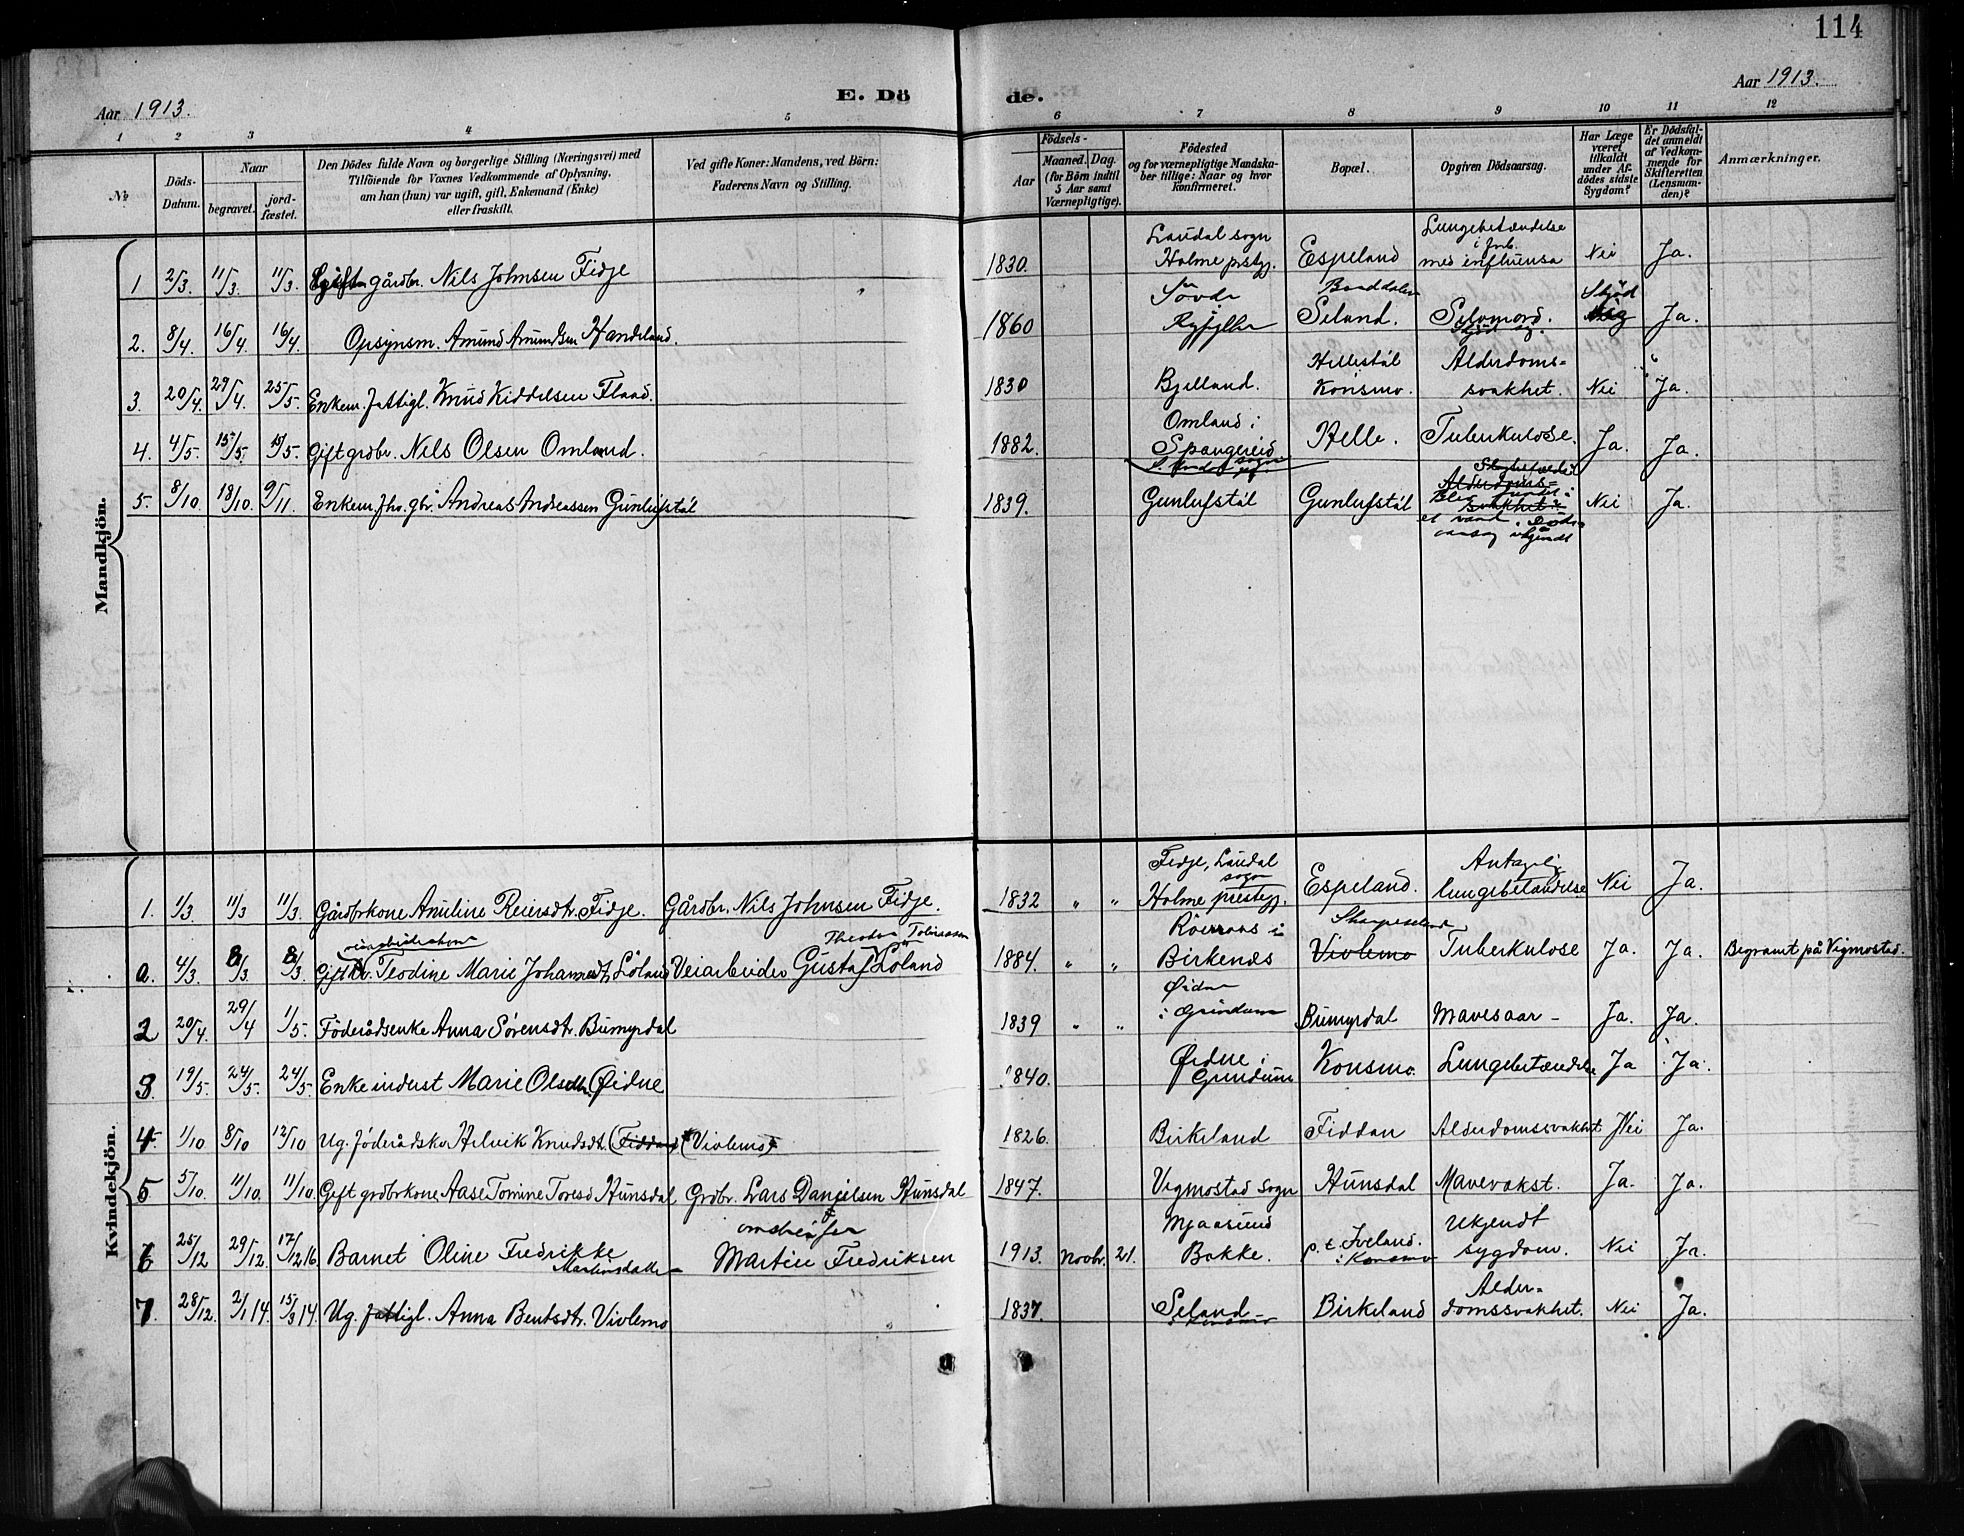 114
Aar 1913.
E. Dö
de.
Aar 1913.
1 2 3 4 5 6 7 8 9 10 11 12
№
Döds-Datum.
Naar
begravet.
jord-fæstet.
Den Dödes fulde Navn og borgerlige Stilling (Næringsvei) med
Tilföiende for Voxnes Vedkommende af Oplysning,
om han (hun) var ugift, gift, Enkemand (Enke)
eller fraskilt.
Ved gifte Koner: Mandens, ved Börn:
Faderens Navn og Stilling.
Födsels-
Aar
Maaned. Dag.
(for Börn indtil
5 Aar samt
Værnepligtige).
Födested
og for værnepligtige Mandska-
ber tillige: Naar og hvor
konfirmeret.
Bopæl.
Opgiven Dödsaarsag.
Har Læge
været
tilkaldt
under Af-
dödes sidste
Sygdom?
Er Dödsfal-
det anmeldt
af Vedkom-
mende for
Skifteretten
(Lensman-
den)?
Anmærkninger.
Mandkjön.
1 2/3. 11/3. 11/3. gårdbr. Nils Johnsen Fidje 1830. Laudal sogn Holme prstgj. Espeland Lungebetændelse i forb. med influensa Nei Ja.
2. 8/4. 16/4. 16/4. Opsynsm. Amund Amundsen Handeland. 1860 Sövde Ryfylke Seland. Selvmord. Skjöd sig. Ja.
3. 20/4. 29/4. 25/5. Enkem. fattigl. Knud Kiddelsen Flaad. 1830 Bjelland. Hellestöl Konsmo. Alderdoms=svakhet. Nei Ja.
4. 4/5. 15/5. 15/5. Gift grdbr. Nils Olsen Omland. 1882. Omland i Spangereid sogn Helle. Tuberkulose. Ja. Ja.
5. 8/10. 18/10. 9/11. Enkem. fhv. gbr. Andreas Andreassen Gunlufstöl 1839. Gunlufstöl Gunlufstöl Alderdoms=svakhet Blev fundet i et vand. Döds aarsag ukjendt Nei Ja.
Kvindekjön.
1. 1/3. 11/3 11/3. Gårdbrkone Anuline Reiersdtr. Fidje. Gårdbr. Nils Johnsen Fidje. 1832 " " Fidje, Laudal sogn Holme prestegj. Espeland. Antagelig lungebetændelse Nei Ja.
a. 4/3. 8/3 8/3. Gift Teodine Marie Johannesdtr. Löland Veiarbeider Theodor Tobiassen Gustaf Löland 1884. " " i Birkenes Vivlemo Tuberkulose Ja. Ja. Begravet på Vigmostad.
2 20/4. 29/4 1/5. Föderådsenke Anna Sörensdtr. Bumyrdal 1839 " " Øidne i Grindum Bumyrdal Mavesaar – Ja. Ja.
3. 19/5. 24/5. 24/5. Enke inderst Marie Olsdtr. Øidne 1840. Øidne i Grindum Konsmo Lungebetændelse Ja Ja.
4. 1/10 8/10 12/10 Ug. föderådskv. Helvik Knudsdtr. (Fiddan) (Vivlemo) 1826. Birkeland Fiddan Alderdomssvakhet Nei Ja.
5 5/10. 11/10. 11/10. Gift grdbrkone Aase Tomine Toresd. Hunsdal Grdbr. Lars Danielsen Hunsdal 1847. Vigmostad Sogn Hunsdal Mavevækst. Ja. Ja.
6 25/12 29/12. 17/12 16. Barnet Oline Fredrikke Martinsdatter omstreifer Martin Fredriksen 1913. Novbr. 21. Mjaasund Bakke. p.t. Iveland. i Konsmo Ukjendt sygdom. Nei Ja.
7. 28/12. 2/1 14. 15/3 14. Ug. fattigl. Anna Bentsdtr. Vivlemo 1837. Seland – i Konsmo Birkeland Alder=domssvakhet. Nei Ja.